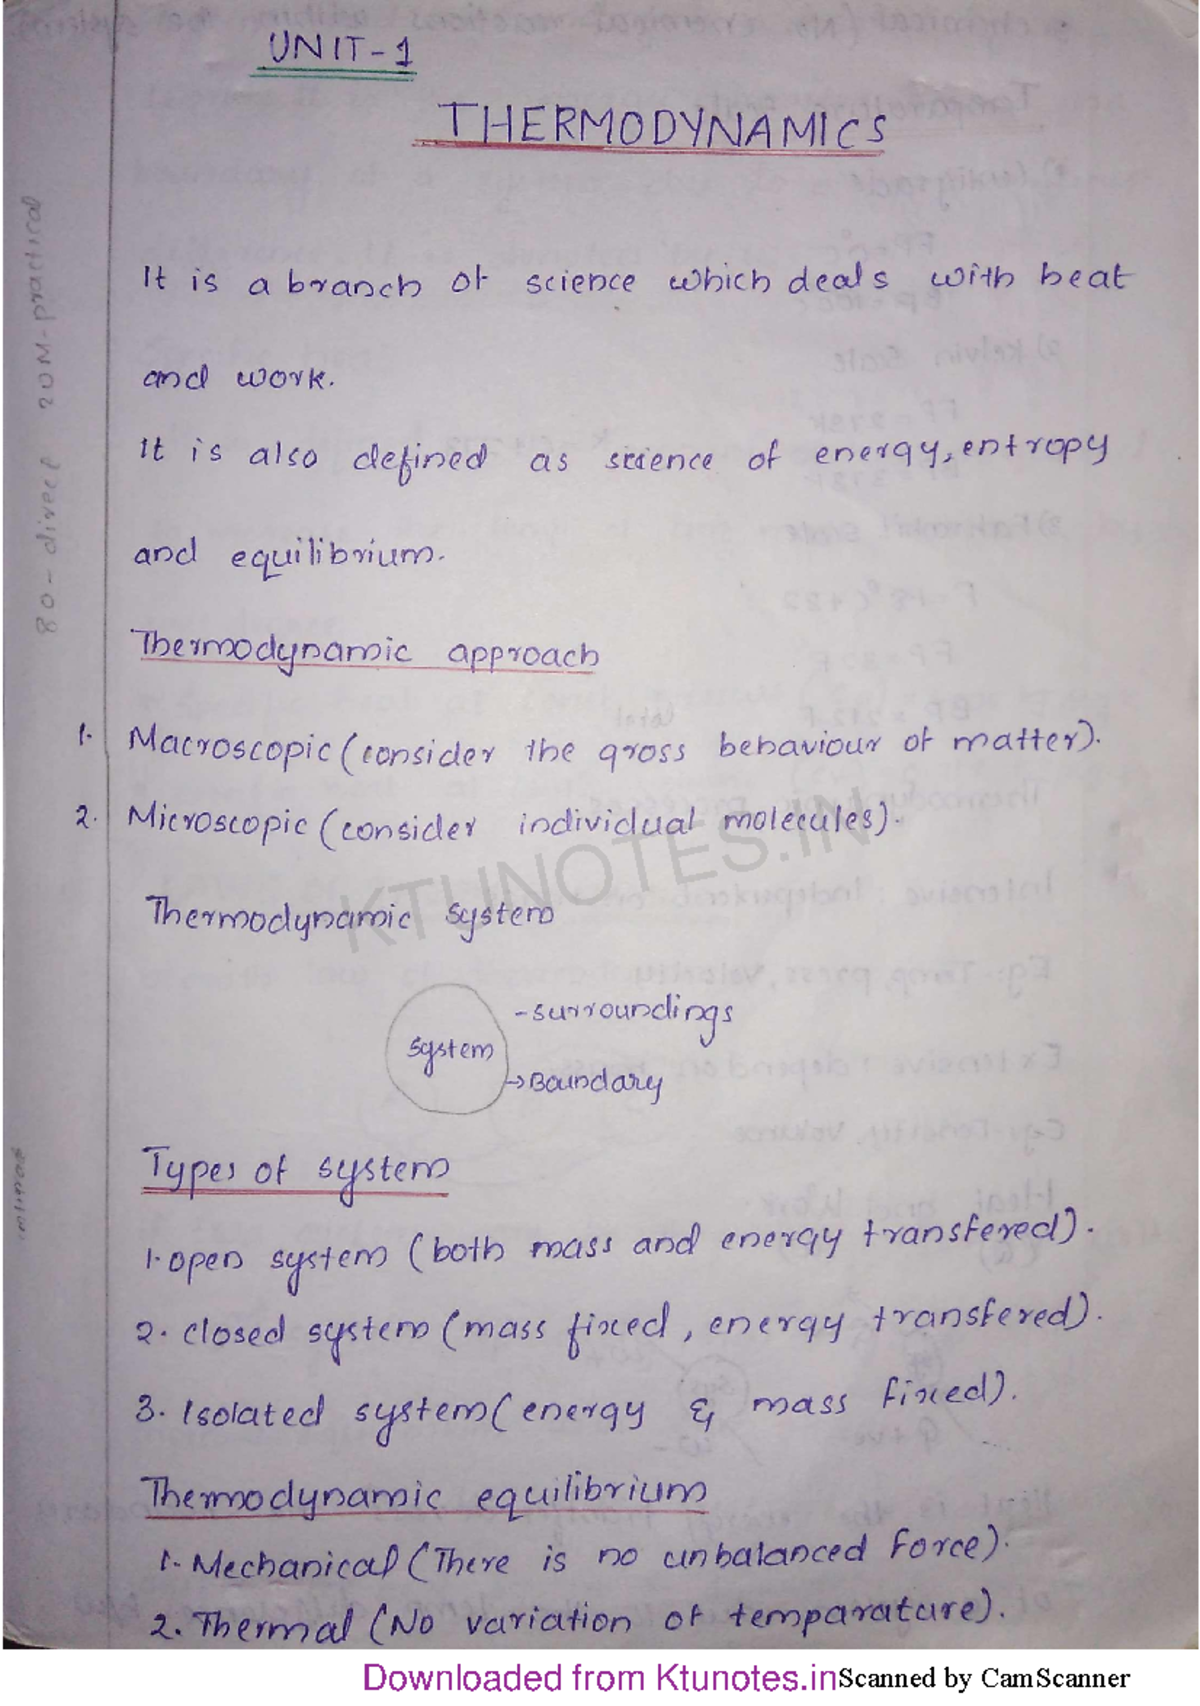 UNIT-1
THERMODYNAMICS
It is a branch of science which deals with heat
and work.
It is also defined as science of energy, entropy
and equilibrium.
Thermodynamic approach
1. Macroscopic (consider the gross behaviour of matter).
2. Microscopic (consider individual molecules).
Thermodynamic system
-surroundings
system
→Boundary
Types of system
1. open system (both mass and energy transfered).
2. closed system (mass fixed, energy transfered).
3. Isolated system (energy & mass fixed).
Thermodynamic equilibrium
1. Mechanical (There is no unbalanced force).
2. Thermal (No variation of temparature).
80-direct 20M-practical
KTUNOTES.IN
Downloaded from Ktunotes.in
Scanned by CamScanner